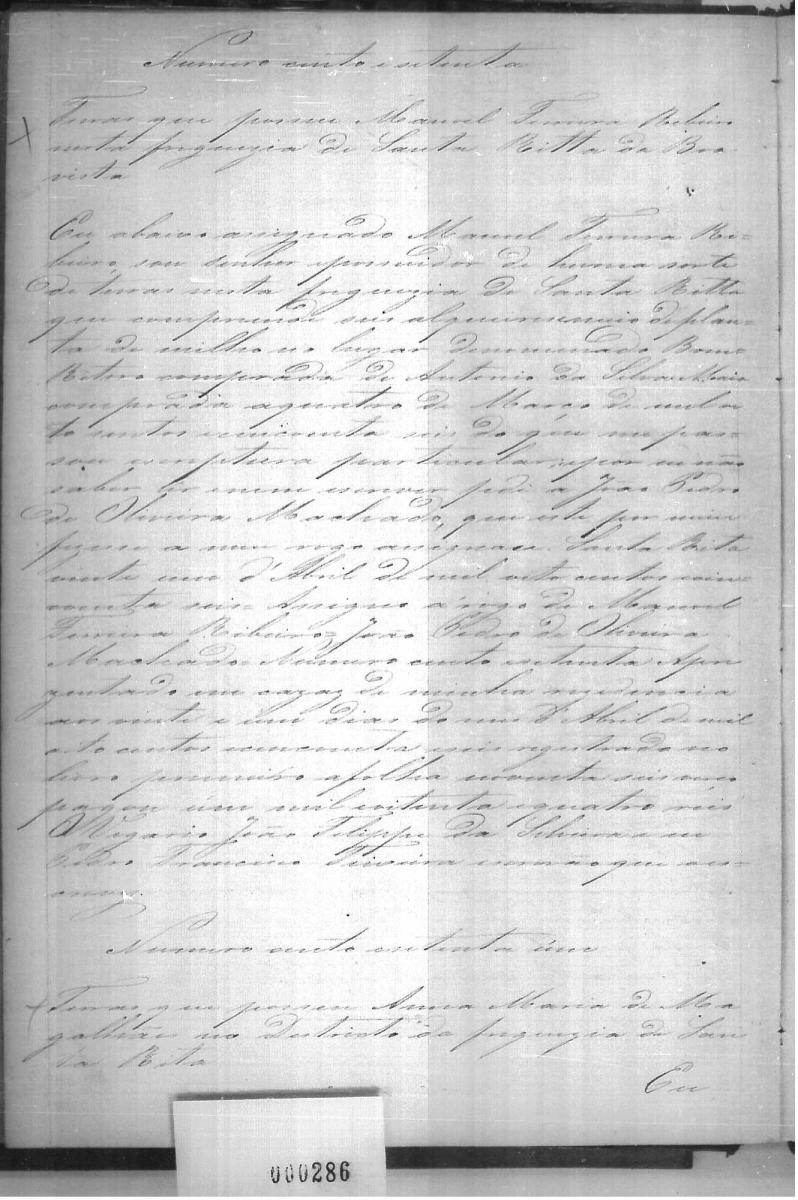 Numero cento e setenta
Terras que possue Manoel Ferreira Ribeiro
nesta freguezia de Santa Ritta da Boa
vista
Eu abaixo assignado Manoel Ferreira Ri-
beiro, sou senhor e possuidor de huma sorte
de terras nesta freguezia de Santa Ritta
que comprende seis alqueires e meio de plan-
ta de milho no lugar denominado Bom
Retiro comprada de Antonio da Silva Maia
comprada a quatro de Março de mil oi
to centos e cincoenta seis do que me pas-
sou escriptura particular, e por eu não
saber ler e nem escrever pedi a João Pedro
de Oliveira Machado, que este por mim
fizesse a meu rogo assignace. Santa Rita
vinte um d'Abril de mil oito centos cin-
coenta seis. Assigno a rogo de Manoel
Ferreira Ribeiro = João Pedro de Oliveira
Machado. Numero cento e setenta Apre
zentado em cazaz de minha rezidencia
aos vinte e um dias do mes d'Abril de mil
oito centos e cincoenta e seis registrado no
livro primeiro a folha noventa seis verço
pagou um mil e oitenta e quatro reis
O Vigario João Filippe da Silveira e eu
Pedro Francisco Teixeira escrivão que o es-
crevy.
Numero cento e setenta úm
Terras que possue Anna Maria de Ma
galhães no Destricto da freguezia de San
ta Rita
Eu
000286